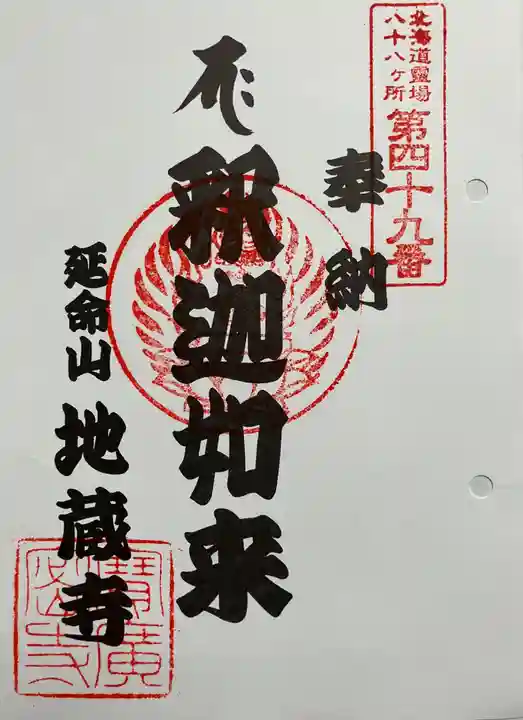 北海道靈場
八十八ヶ所
第四十九番
奉納
釈迦如来
延命山
地蔵寺